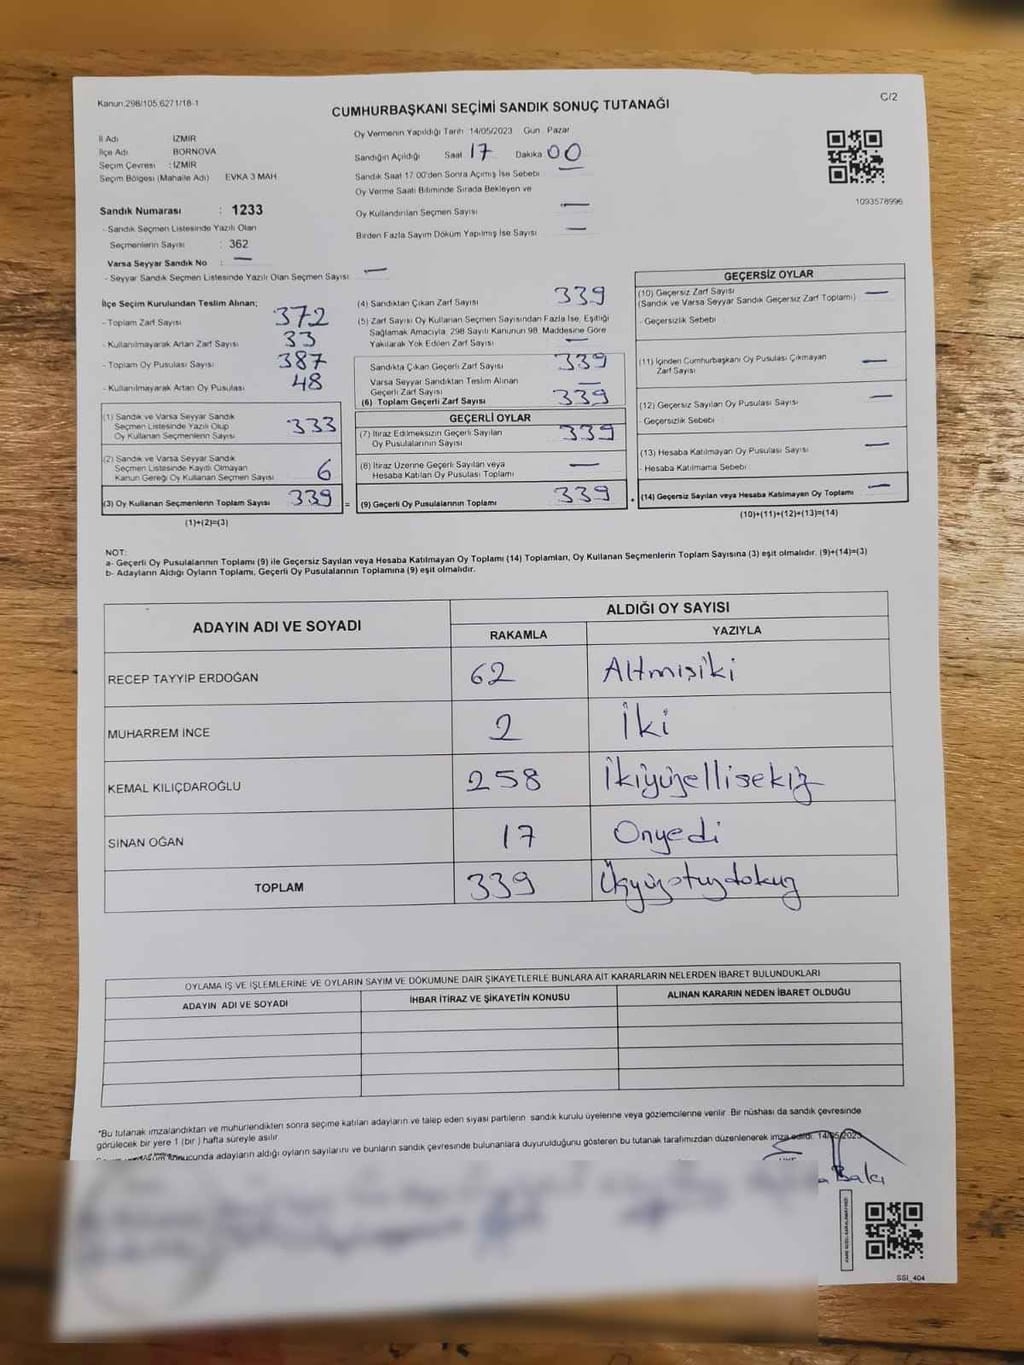 Kanun:298/105,6271/18-1
C/2
CUMHURBAŞKANI SEÇİMİ SANDIK SONUÇ TUTANAĞI
İl Adı : İZMİR
İlçe Adı : BORNOVA
Seçim Çevresi : İZMİR
Seçim Bölgesi (Mahalle Adı) EVKA 3 MAH
Sandık Numarası : 1233
- Sandık Seçmen Listesinde Yazılı Olan
Seçmenlerin Sayısı : 362
Varsa Seyyar Sandık No : —
- Seyyar Sandık Seçmen Listesinde Yazılı Olan Seçmen Sayısı : —
Oy Vermenin Yapıldığı Tarih 14/05/2023 Gün Pazar
Sandığın Açıldığı Saat 17 Dakika 00
Sandık Saat 17.00'den Sonra Açılmış İse Sebebi —
Oy Verme Saati Bitiminde Sırada Bekleyen ve
Oy Kullandırılan Seçmen Sayısı —
Birden Fazla Sayım Döküm Yapılmış İse Sayısı —
1093578996
İlçe Seçim Kurulundan Teslim Alınan;
- Toplam Zarf Sayısı 372
- Kullanılmayarak Artan Zarf Sayısı 33
- Toplam Oy Pusulası Sayısı 387
- Kullanılmayarak Artan Oy Pusulası 48
(1) Sandık ve Varsa Seyyar Sandık
Seçmen Listesinde Yazılı Olup
Oy Kullanan Seçmenlerin Sayısı 333
(2) Sandık ve Varsa Seyyar Sandık
Seçmen Listesinde Kayıtlı Olmayan
Kanun Gereği Oy Kullanan Seçmen Sayısı 6
(3) Oy Kullanan Seçmenlerin Toplam Sayısı 339 =
(1)+(2)=(3)
(4) Sandıktan Çıkan Zarf Sayısı 339
(5) Zarf Sayısı Oy Kullanan Seçmen Sayısından Fazla İse, Eşitliği
Sağlamak Amacıyla, 298 Sayılı Kanunun 98. Maddesine Göre
Yakılarak Yok Edilen Zarf Sayısı —
Sandıkta Çıkan Geçerli Zarf Sayısı 339
Varsa Seyyar Sandıktan Teslim Alınan
Geçerli Zarf Sayısı —
(6) Toplam Geçerli Zarf Sayısı 339
GEÇERLİ OYLAR
(7) İtiraz Edilmeksizin Geçerli Sayılan
Oy Pusulalarının Sayısı 339
(8) İtiraz Üzerine Geçerli Sayılan veya
Hesaba Katılan Oy Pusulası Toplamı —
(9) Geçerli Oy Pusulalarının Toplamı 339 +
GEÇERSİZ OYLAR
(10) Geçersiz Zarf Sayısı —
(Sandık ve Varsa Seyyar Sandık Geçersiz Zarf Toplamı)
- Geçersizlik Sebebi
(11) İçinden Cumhurbaşkanı Oy Pusulası Çıkmayan
Zarf Sayısı —
(12) Geçersiz Sayılan Oy Pusulası Sayısı —
- Geçersizlik Sebebi
(13) Hesaba Katılmayan Oy Pusulası Sayısı —
- Hesaba Katılmama Sebebi
(14) Geçersiz Sayılan veya Hesaba Katılmayan Oy Toplamı —
(10)+(11)+(12)+(13)=(14)
NOT:
a- Geçerli Oy Pusulalarının Toplamı (9) ile Geçersiz Sayılan veya Hesaba Katılmayan Oy Toplamı (14) Toplamları, Oy Kullanan Seçmenlerin Toplam Sayısına (3) eşit olmalıdır. (9)+(14)=(3)
b- Adayların Aldığı Oyların Toplamı, Geçerli Oy Pusulalarının Toplamına (9) eşit olmalıdır.
ADAYIN ADI VE SOYADI ALDIĞI OY SAYISI
RAKAMLA YAZIYLA
RECEP TAYYİP ERDOĞAN 62 Altmışiki
MUHARREM İNCE 2 İki
KEMAL KILIÇDAROĞLU 258 İkiyüzellisekiz
SİNAN OĞAN 17 Onyedi
TOPLAM 339 Üçyüzotuzdokuz
OYLAMA İŞ VE İŞLEMLERİNE VE OYLARIN SAYIM VE DÖKÜMÜNE DAİR ŞİKAYETLERLE BUNLARA AİT KARARLARIN NELERDEN İBARET BULUNDUKLARI
ADAYIN ADI VE SOYADI İHBAR İTİRAZ VE ŞİKAYETİN KONUSU ALINAN KARARIN NEDEN İBARET OLDUĞU
"Bu tutanak imzalandıktan ve mühürlendikten sonra seçime katılan adayların ve talep eden siyasi partilerin sandık kurulu üyelerine veya gözlemcilerine verilir. Bir nüshası da sandık çevresinde
görülecek bir yere 1 (bir) hafta süreyle asılır.
sonucunda adayların aldığı oyların sayılarını ve bunların sandık çevresinde bulunanlara duyurulduğunu gösteren bu tutanak tarafımızdan düzenlenerek imza edildi. 14/05/2023
Balcı
SSI_404